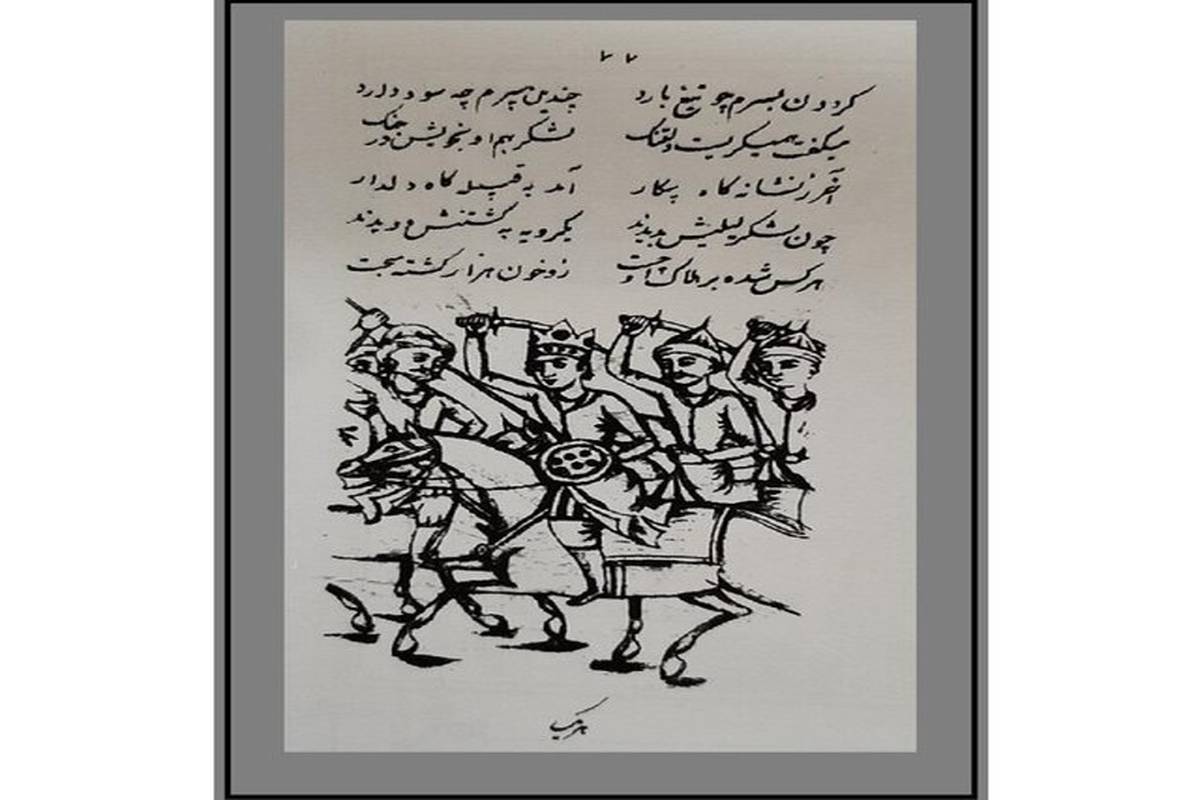 ۷۷
گردون بسرم چو تیغ بارد چندین سپرم چه سود دارد
میگفت همیگریست دلتنگ لشکر بهم او بخویش در جنگ
آخر ز نشانه گاه پیکار آمد به قبیله گاه دلدار
چون لشکر لیلیش بدیدند یکرویه به کشتنش دویدند
هرکس شده بر هلاک او جست زو خون هزار کشته میجست
هریک